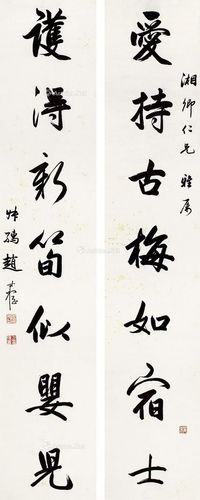 愛持古梅如宿士
湘卿仁兄雅屬
護得新筍似嬰兒
叔孺趙